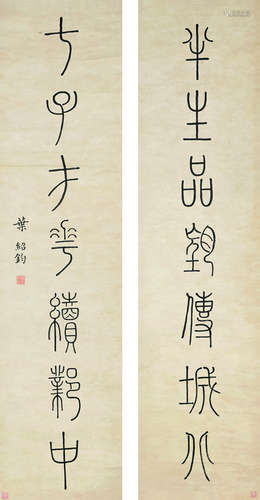 半生品望傳城北
七子才華續鄴中
葉紹鈞